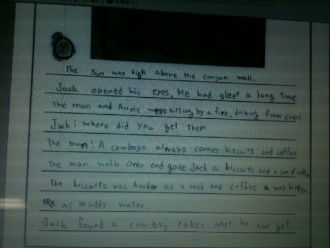 The sun was high above the canyon wall.
Jack opened his eyes, He had slept a long time
The man and Annie sitting by a fire, driking from cups
Jack: where did you get them
The man: A cowboys always carries biscuits and coffee
The man walk over and gave Jack a biscuits and a cup of coffee
The biscuits was harder as a rock and coffee was bitter
as muddy water.
Jack found a cowboy takes what he can get